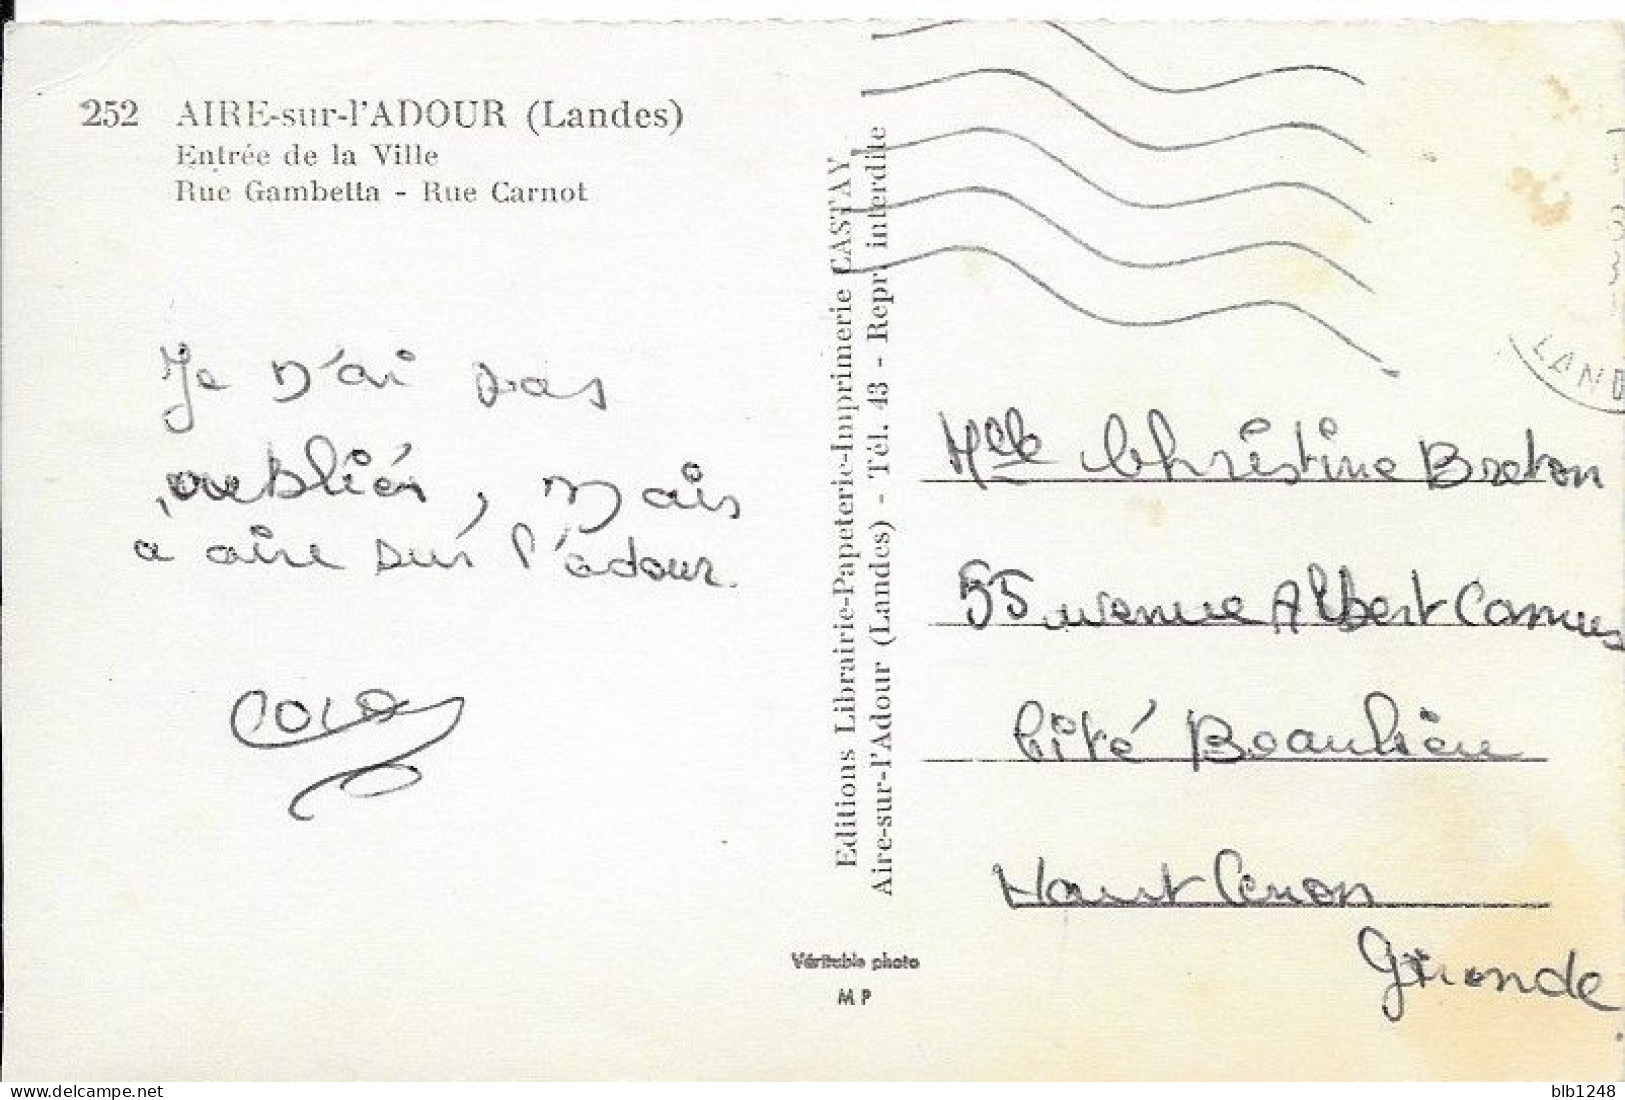 252 AIRE-sur-l'ADOUR (Landes)
Entrée de la Ville
Rue Gambetta - Rue Carnot
Je n'ai pas
oubliér, mais
a aire sur l'adour.
Editions Librairie-Papeterie-Imprimerie CASTAY
Aire-sur-l'Adour (Landes) - Tél. 43 - Repr. interdite
LAND
Mlle Christine Breton
55 avenue Albert Camus
Cité Beaulieu
Haut Cenon
Gironde
Véritable photo
M P
akpool.co.uk
blb1248